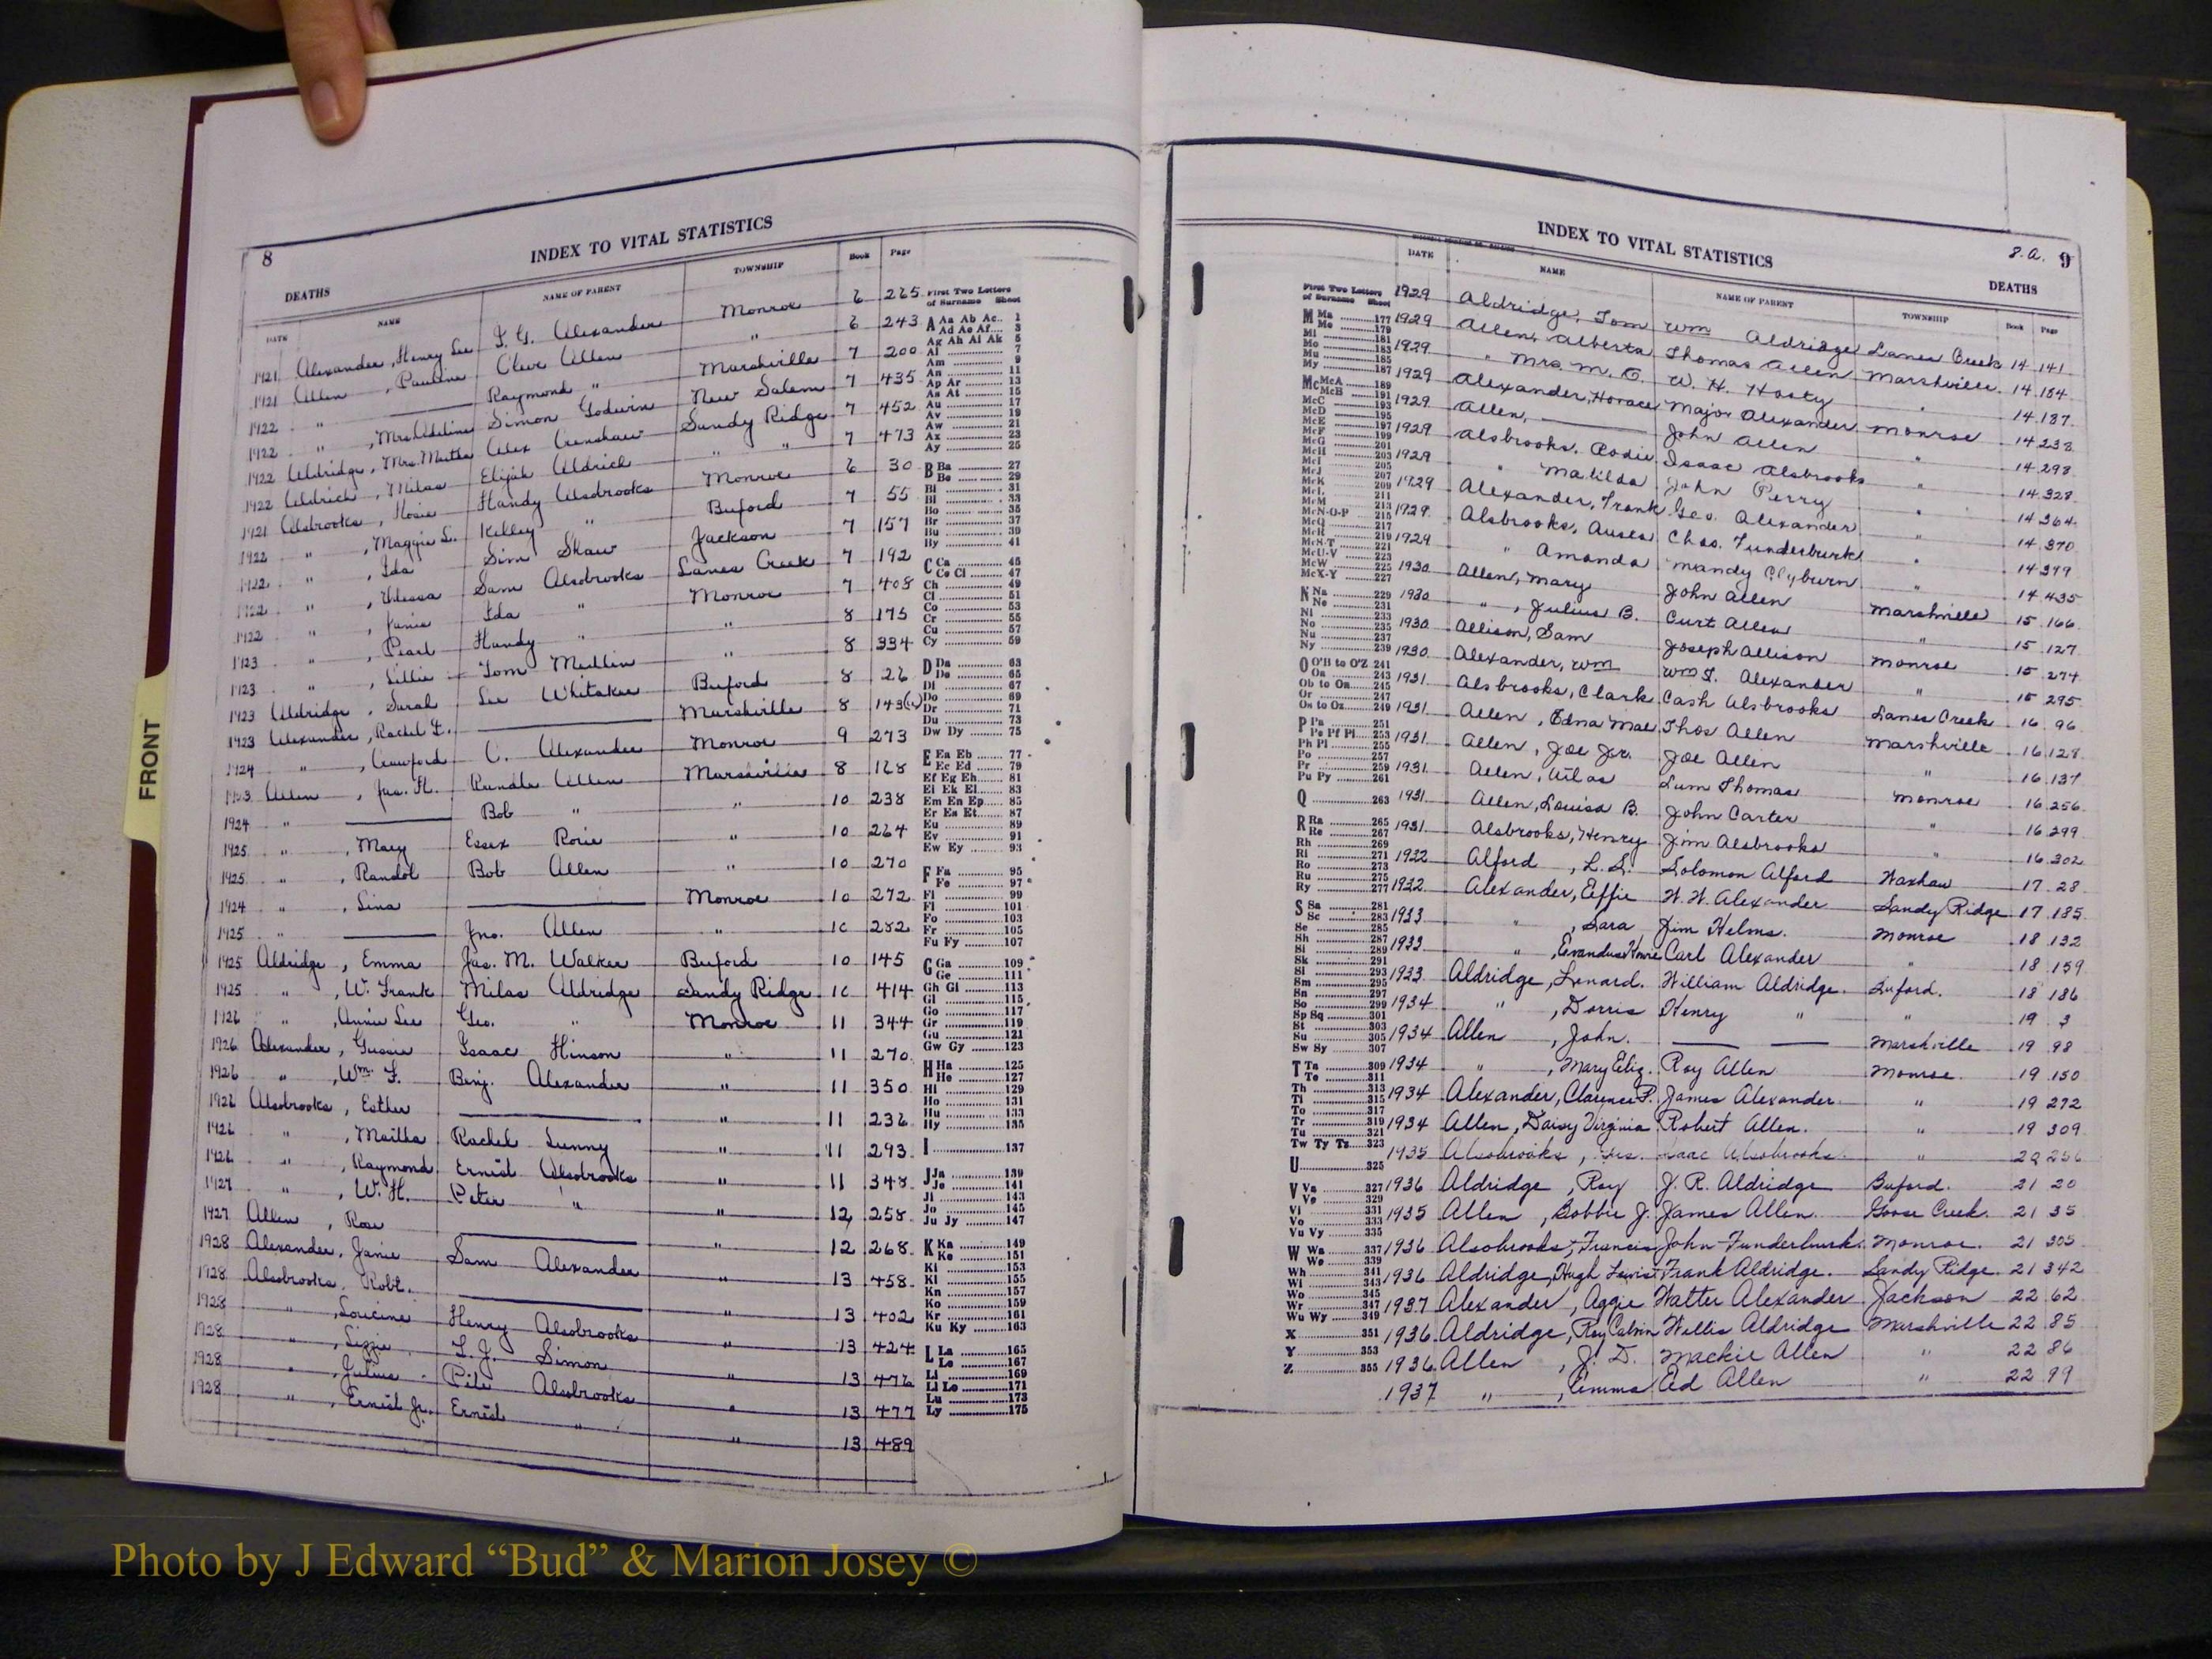 8
INDEX TO VITAL STATISTICS
DEATHS
DATE NAME NAME OF PARENT TOWNSHIP Book Page
1921 Alexander, Henry Lee F. G. Alexander Monroe 6 265
1921 Allen, Pauline Cleve Allen " 6 243
1922 " — Raymond " Marshville 7 200
1922 " , Mrs. Adeline Simon Godwin New Salem 7 435
1922 Aldridge, Mrs. Martha Alex Crenshaw Sandy Ridge 7 452
1922 Aldrich, Milas Elijah Aldrich " " 7 473
1921 Alsobrooks, Rosie Handy Alsobrooks Monroe 6 30
1922 " , Maggie L. Kelley " Buford 7 55
1922 " , Ida Sim Shaw Jackson 7 157
1922 " , Sam Alsobrooks Lanes Creek 7 192
1922 " , Janie Ida " Monroe 7 408
1923 " , Pearl Handy " " 8 175
1923 " , Lillie Tom Medlin " 8 334
1923 Aldridge, Sarah Lee Whitaker Buford 8 26
1923 Alexander, Rachel L. — Marshville 8 143
1924 " , Crawford C. Alexander Monroe 9 273
1923 Allen, Jas. H. Rundle Allen Marshville 8 128
1924 " — Bob " " 10 238
1925 " , Mary Essex Rorie " 10 264
1925 " , Randol Bob Allen " 10 270
1924 " , Lina — Monroe 10 272
1925 " — Jno. Allen " 10 282
1925 Aldridge, Emma Jas. M. Walker Buford 10 145
1925 " , W. Frank Milas Aldridge Sandy Ridge 10 414
1926 " , Annie Lee Geo. " Monroe 11 344
1926 Alexander, Gussie Isaac Hinson " 11 270
1926 " , Wm. F. Benj. Alexander " 11 350
1926 Alsobrooks, Esther — " 11 236
1926 " , Martha Rachel Sunny " 11 293
1926 " , Raymond Ernest Alsobrooks " 11 348
1927 " , W. H. Peter " " 12 258
1927 Allen, Rose — " 12 268
1928 Alexander, Janie Sam Alexander " 13 458
1928 Alsobrooks, Robt. — " 13 402
1928 " , Loucine Henry Alsobrooks " 13 424
1928 " , Lizzie L. J. Simon " 13 476
1928 " , Julius Pete Alsobrooks " 13 477
1928 " , Ernest Jr. Ernest " " 13 489
First Two Letters
of Surname Sheet
A Aa Ab Ac 1
Ad Ae Af 3
Ag Ah Ai Ak 5
Al 7
Am 9
An 11
Ap Ar 13
As At 15
Au 17
Av 19
Aw 21
Ax 23
Ay 25
B Ba 27
Be 29
Bi 31
Bl 33
Bo 35
Br 37
Bu 39
By 41
C Ca 45
Ce Ci 47
Ch 49
Cl 51
Co 53
Cr 55
Cu 57
Cy 59
D Da 63
De 65
Di 67
Do 69
Dr 71
Du 73
Dw Dy 75
E Ea Eb 77
Ec Ed 79
Ef Eg Eh 81
Ei Ek El 83
Em En Ep 85
Er Es Et 87
Eu 89
Ev 91
Ew Ey 93
F Fa 95
Fe 97
Fi 99
Fl 101
Fo 103
Fr 105
Fu Fy 107
G Ga 109
Ge 111
Gh Gi 113
Gl 115
Go 117
Gr 119
Gu 121
Gw Gy 123
H Ha 125
He 127
Hi 129
Ho 131
Hu 133
Hy 135
I 137
J Ja 139
Je 141
Ji 143
Jo 145
Ju Jy 147
K Ka 149
Ke 151
Ki 153
Kl 155
Kn 157
Ko 159
Kr 161
Ku Ky 163
L La 165
Le 167
Li 169
Ll Lo 171
Lu 173
Ly 175
8.a. 9
INDEX TO VITAL STATISTICS
DEATHS
DATE NAME NAME OF PARENT TOWNSHIP Book Page
First Two Letters
of Surname Sheet
M Ma 177
Me 179
Mi 181
Mo 183
Mu 185
My 187
Mc McA 189
McB 191
McC 193
McD 195
McE 197
McF 199
McG 201
McH 203
McI 205
McJ 207
McK 209
McL 211
McM 213
McN-O-P 215
McQ 217
McR 219
McS-T 221
McU-V 223
McW 225
McX-Y 227
N Na 229
Ne 231
Ni 233
No 235
Nu 237
Ny 239
O O'B to O'Z 241
Oa 243
Ob to On 245
Or 247
Os to Oz 249
P Pa 251
Pe Pf Pi 253
Ph Pl 255
Po 257
Pr 259
Pu Py 261
Q 263
R Ra 265
Re 267
Rh 269
Ri 271
Ro 273
Ru 275
Ry 277
S Sa 281
Sc 283
Se 285
Sh 287
Si 289
Sk 291
Sl 293
Sm 295
Sn 297
So 299
Sp Sq 301
St 303
Su 305
Sw Sy 307
T Ta 309
Te 311
Th 313
Ti 315
To 317
Tr 319
Tu 321
Tw Ty Tz 323
U 325
V Va 327
Ve 329
Vi 331
Vo 333
Vu Vy 335
W Wa 337
We 339
Wh 341
Wi 343
Wo 345
Wr 347
Wu Wy 349
X 351
Y 353
Z 355
1929 Aldridge, Tom Wm Aldridge Lanes Creek 14 141
1929 Allen, Alberta Thomas Allen Marshville 14 184
1929 " Mrs. M. E. W. H. Hasty " 14 187
1929 Alexander, Horace Major Alexander Monroe 14 238
1929 Allen, — John Allen " 14 298
1929 Alsbrooks, Rosie Isaac Alsbrooks " 14 328
1929 " Matilda John Perry " 14 364
1929 Alexander, Frank Geo. Alexander " 14 370
1929 Alsbrooks, Ausea Chas. Funderburk " 14 379
1929 " Amanda Mandy Clyburn " 14 435
1930 Allen, Mary John Allen Marshville 15 166
1930 " , Julius B. Curt Allen " 15 127
1930 Allison, Sam Joseph Allison Monroe 15 274
1930 Alexander, Wm Wm T. Alexander " 15 295
1931 Alsbrooks, Clark Cash Alsbrooks Lanes Creek 16 96
1931 Allen, Edna Mae Thos Allen Marshville 16 128
1931 Allen, Joe Jr. Joe Allen " 16 137
1931 Allen, Wilas Lum Thomas Monroe 16 256
1931 Allen, Louisa B. John Carter " 16 299
1931 Alsbrooks, Henry Jim Alsbrooks " 16 302
1932 Alford, L. L. Solomon Alford Waxhaw 17 28
1932 Alexander, Effie W. W. Alexander Sandy Ridge 17 185
1933 " , Sara Jim Helms. Monroe 18 132
1933 " , Carl Alexander " 18 159
1933 Aldridge, Lenard. William Aldridge. Buford. 18 186
1934 " , Dorris Henry " " 19 3
1934 Allen, John. — — Marshville 19 98
1934 " , Mary Eliz. Roy Allen Monroe. 19 150
1934 Alexander, Clarence P. James Alexander " 19 272
1934 Allen, Daisy Virginia Robert Allen. " 19 309
1935 Alsobrooks, Isaac Alsobrooks "
1936 Aldridge, Roy J. R. Aldridge Buford. 21 20
1935 Allen, Bobbie J. James Allen. Goose Creek. 21 35
1936 Alsobrooks, Francis John Funderburk. Monroe. 21 305
1936 Aldridge, Hugh Lewis Frank Aldridge. Sandy Ridge. 21 342
1937 Alexander, Aggie Walter Alexander Jackson 22 62
1936 Aldridge, Roy Calvin Willis Aldridge Marshville 22 85
1936 Allen, J. D. Mackie Allen " 22 86
1937 " , Emma Ed Allen " 22 99
FRONT
Photo by J Edward “Bud” & Marion Josey ©